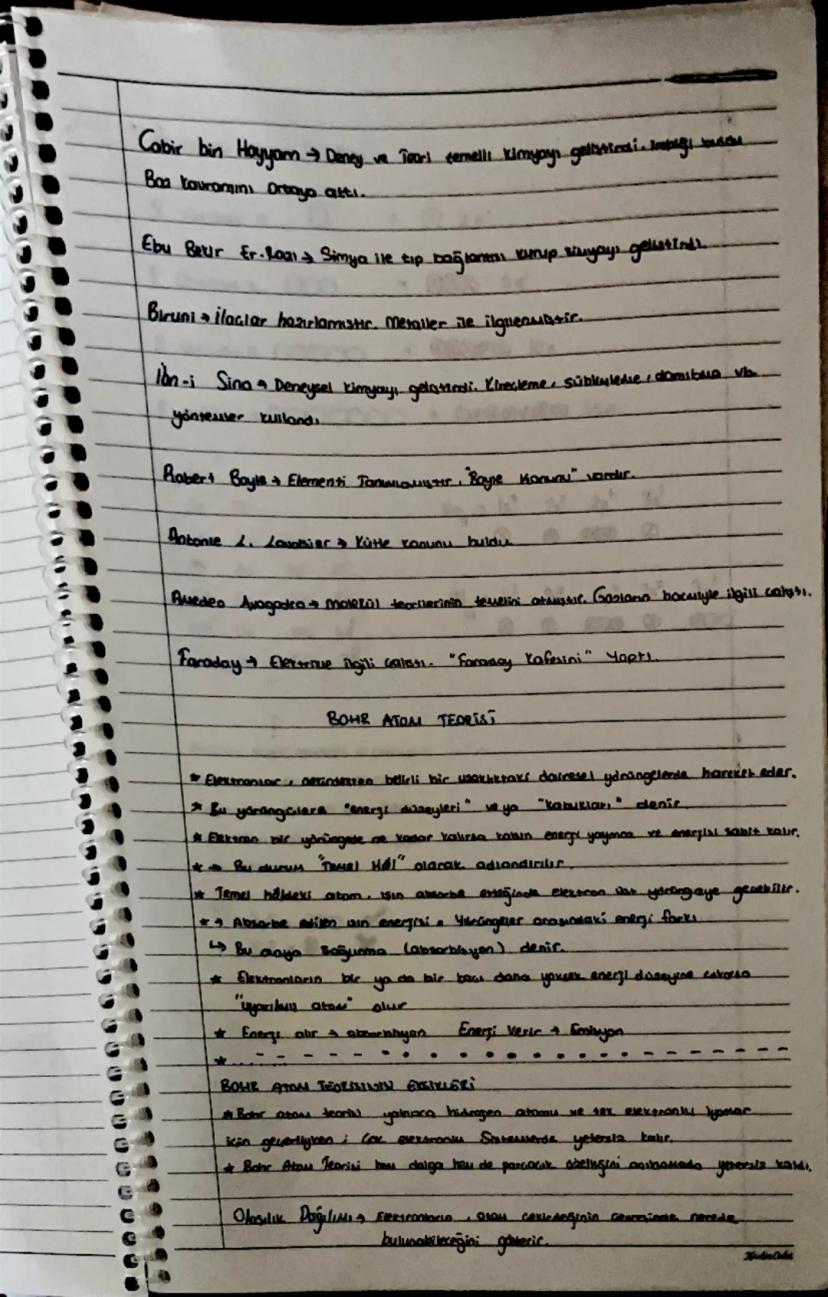 Cabir bin Hayyam → Deney ve Teori temelli kimyayı geliştirdi. İmbiği buldu
Baz kavramını Ortaya attı.
Ebu Bekir Er-Razi → Simya ile tıp bağlantısı kurup kimyayı geliştirdi.
Biruni → İlaçlar hazırlamıştır. Metaller ile ilgilenmiştir.
İbn-i Sina → Deneysel kimyayı geliştirdi. Kireçleme, süblimleşme, damıtma vb.
yöntemler kullandı
Robert Boyle → Elementi Tanımlamıştır. "Boyle Kanunu" vardır.
Antonie L. Lavoisier → Kütle kanunu buldu
Amedeo Avogadro → Molekül teorilerinin temelini atmıştır. Gazların hacmiyle ilgili çalıştı.
Faraday → Elektrikle ilgili çalıştı. "Faraday Kafesini" Yaptı.
BOHR ATOM TEORİSİ
* Elektronlar, çekirdekten belirli bir uzaklıktaki dairesel yörüngelerde hareket eder.
* Bu yörüngelere "enerji düzeyleri" veya "kabukları" denir.
* Elektron bir yörüngede ne kadar kalırsa kalsın enerji yaymaz ve enerjisi sabit kalır.
* → Bu durum "Temel Hâl" olarak adlandırılır.
* Temel hâldeki atom, ışın absorbe ettiğinde elektron üst yörüngeye geçebilir.
* → Absorbe edilen ışın enerjisi = Yörüngeler arasındaki enerji farkı
↳ Bu olaya soğurma (absorbisyon) denir.
* Elektronların bir ya da bir kaçı daha yüksek enerji düzeyine çıkarsa
"uyarılmış atom" olur
* Enerji alır → absorbisyon Enerji Verir → Emisyon
*
BOHR ATOM TEORİSİNİN EKSİKLERİ
* Bohr atom teorisi yalnızca hidrojen atomu ve tek elektronlu iyonlar
için geçerliyken; Çok elektronlu Sistemlerde yetersiz kalır.
* Bohr Atom Teorisi hem dalga hem de parçacık özelliğini açıklamada yetersiz kaldı.
Olasılık Dağılımı → Elektronların, atom çekirdeğinin çevresinde nerede
bulunabileceğini gösterir.